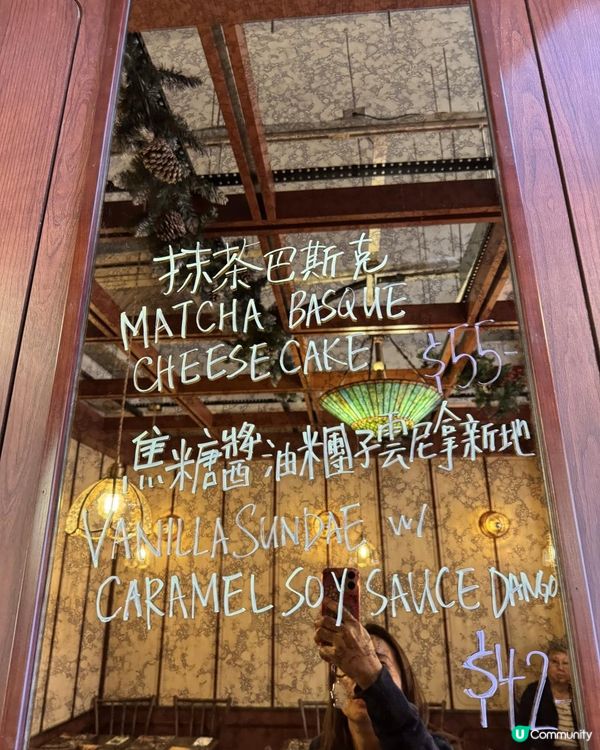 抹茶巴斯克
MATCHA BASQUE
CHEESE CAKE $55-
焦糖醬油米團子雲尼拿新地
VANILLA SUNDAE w/
CARAMEL SOY SAUCE DANGO
$42-
U Community